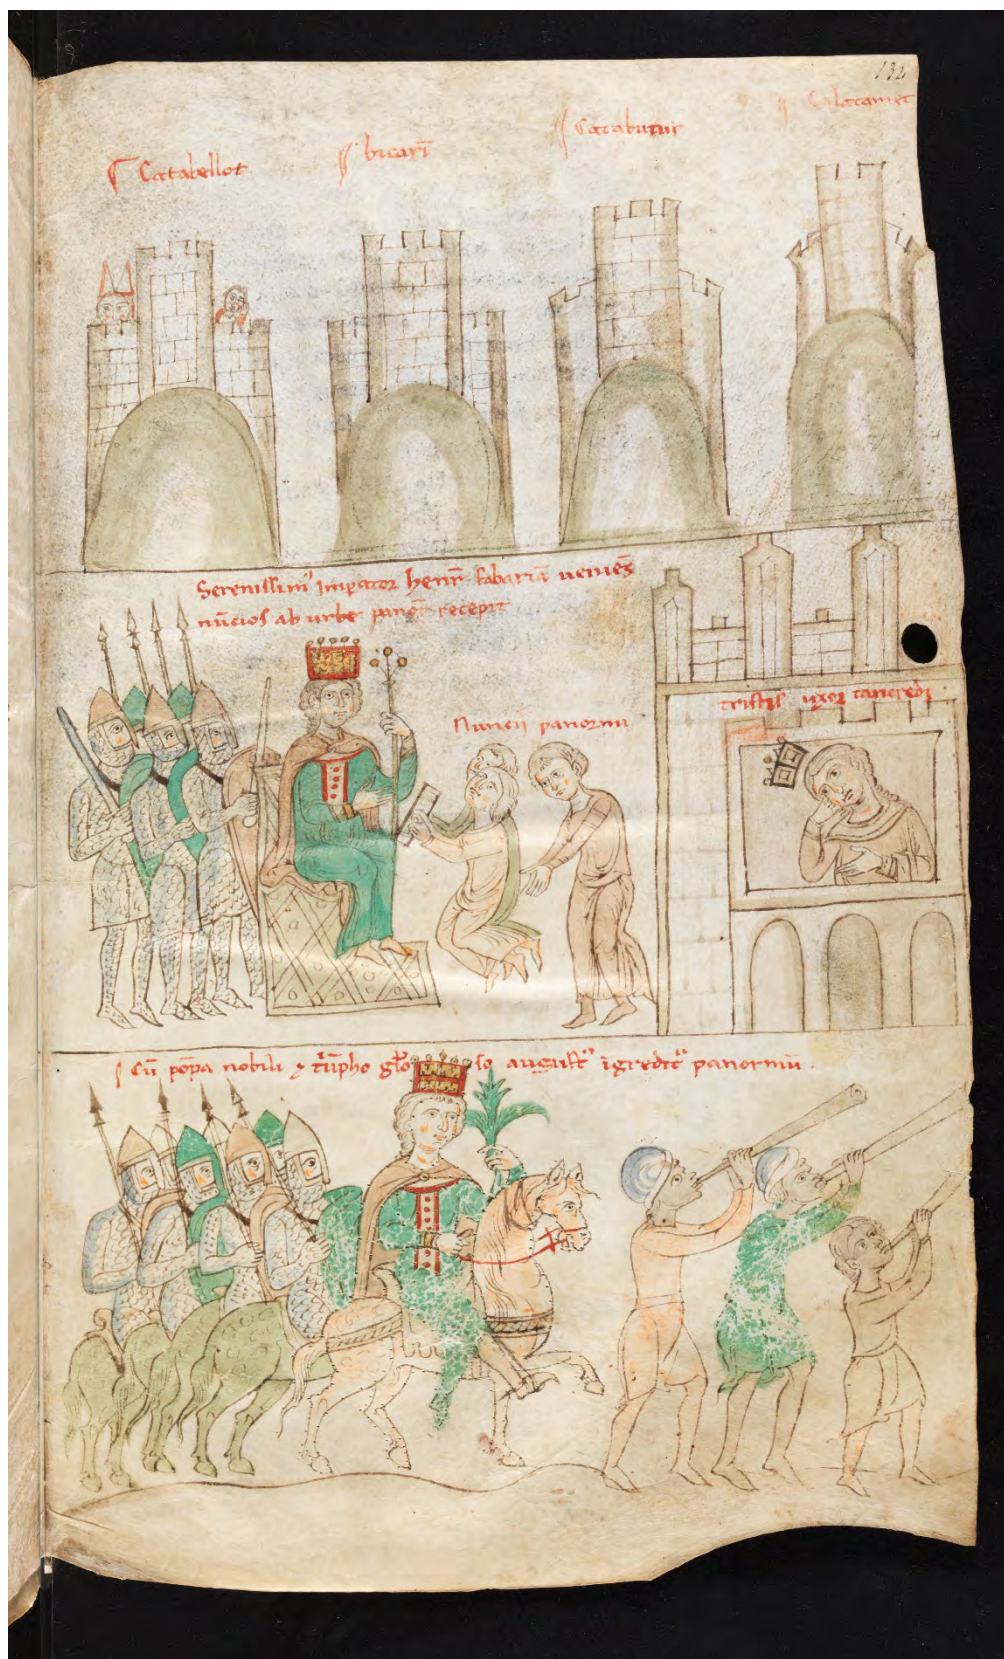 132
Catabellot
bicarī
Catabutur
Calatamet
Serenissim⁹ imꝑator henr̄ fabariā ueniēs
nūcios ab urbe panor̄ recepit
Nuncii panormi
tristis uxor tancredi
Cū pōpa nobili ⁊ tͥūpho glͦo so august⁹ īgredit᷑ panormū.